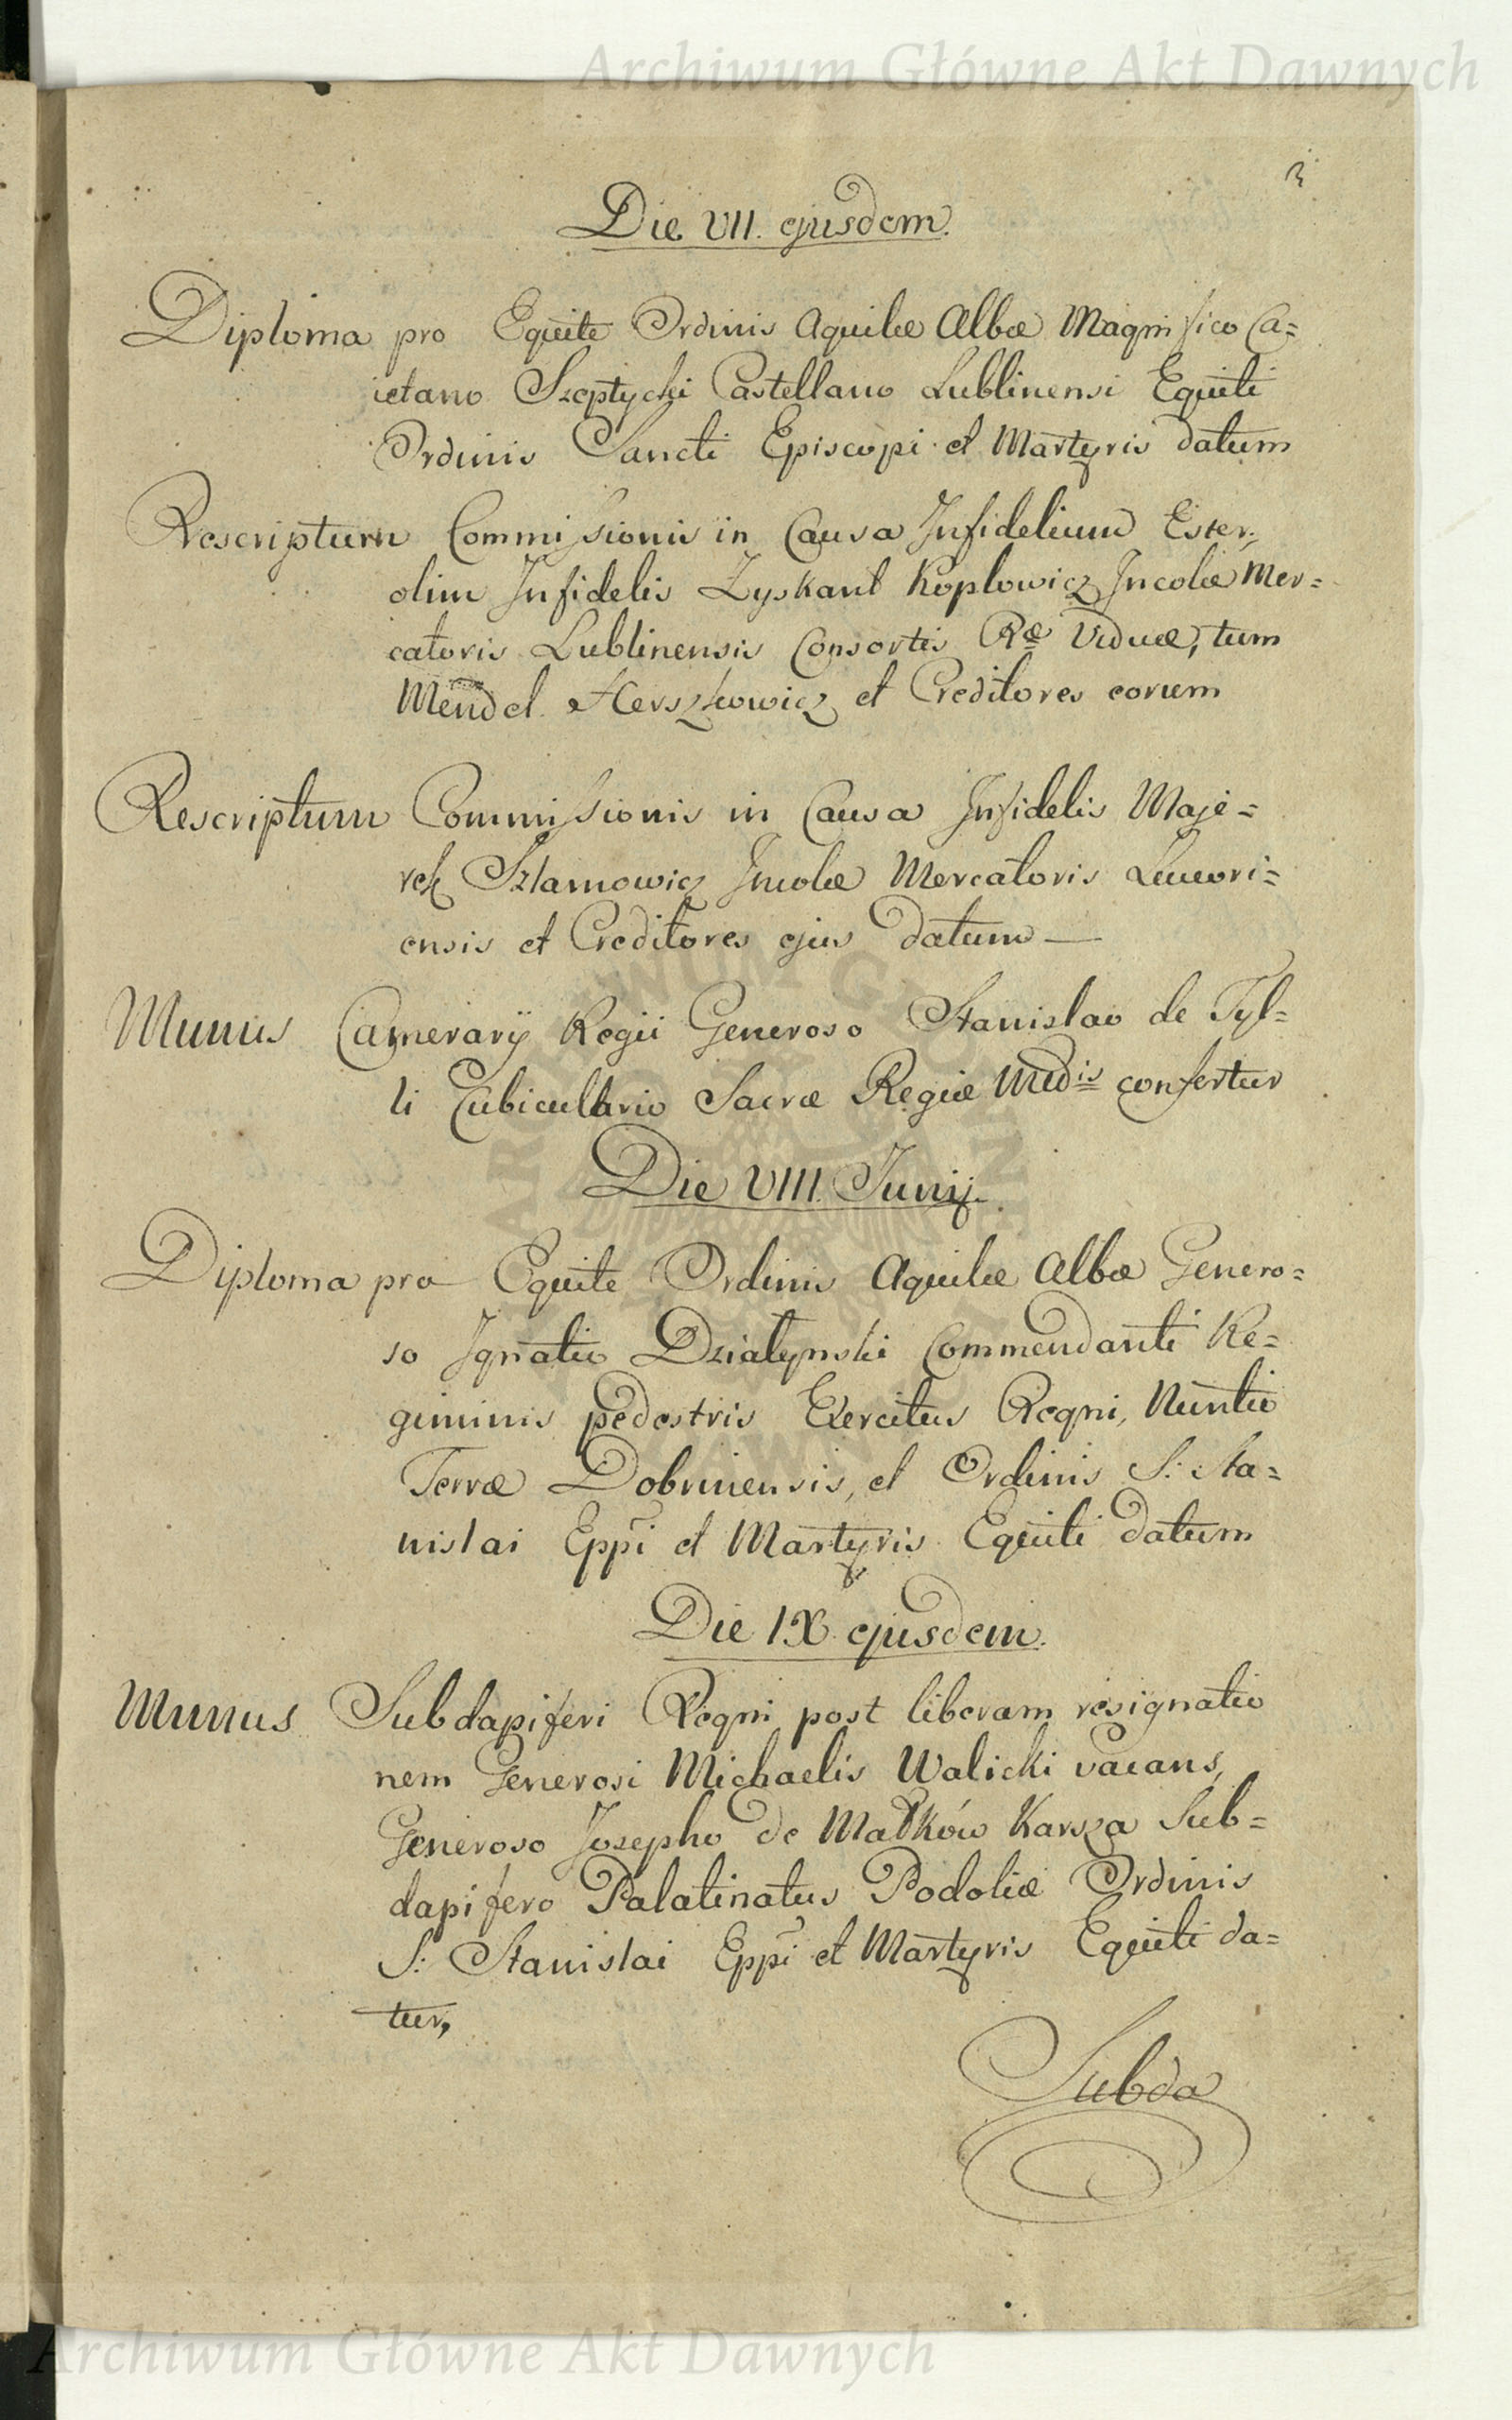 Archiwum Główne Akt Dawnych
3
Die VII. ejusdem.
Diploma pro Equite Ordinis Aquilæ Albæ Magnifico Ca=
ietano Szeptycki Castellano Lublinensi Equiti
Ordinis Sancti Episcopi et Martyris datum
Rescriptum Commissionis in Causa Infidelium Ester,
olim Infidelis Zyskant Koplowicz Incolæ Mer=
catoris Lublinensis Consortis Ræ Viduæ, tum
Mendel Herszkowicz et Creditores eorum
Rescriptum Commissionis in Causa Infidelis Maje=
rek Szlamowicz Incolæ Mercatoris Lucori=
ensis et Creditores ejus datum —
Munus Camerarij Regii Generoso Stanislao de Tyl=
li Cubiculario Sacræ Regiæ Mtis confertur
Die VIII. Junij.
Diploma pro Equite Ordinis Aquilæ Albæ Genero=
so Ignatio Działynski Commendanti Re=
giminis pedestris Exercitus Regni, Nuntio
Terræ Dobrinensis, et Ordinis S: Sta=
nislai Eppi et Martyris Equiti datum
Die IX. ejusdem.
Munus Subdapiferi Regni post liberam resignatio
nem Generosi Michaelis Walicki vacans,
Generoso Josepho de Małków Karsza Sub=
dapifero Palatinatus Podoliæ Ordinis
S: Stanislai Eppi et Martyris Equiti da=
tur,
Subda
Archiwum Główne Akt Dawnych